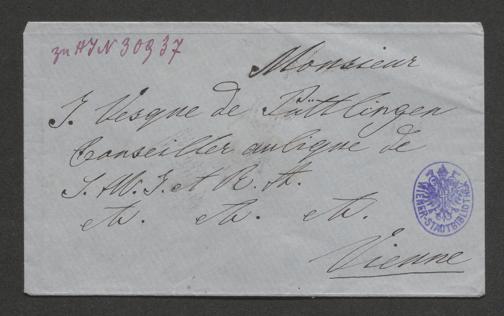 zu HIN 30937
Monsieur
J. Vesque de Püttlingen
Conseiller aulique de
S. M. I. et R. A.
etc. etc. etc.
Vienne
WIENER-STADTBIBLIOTHEK